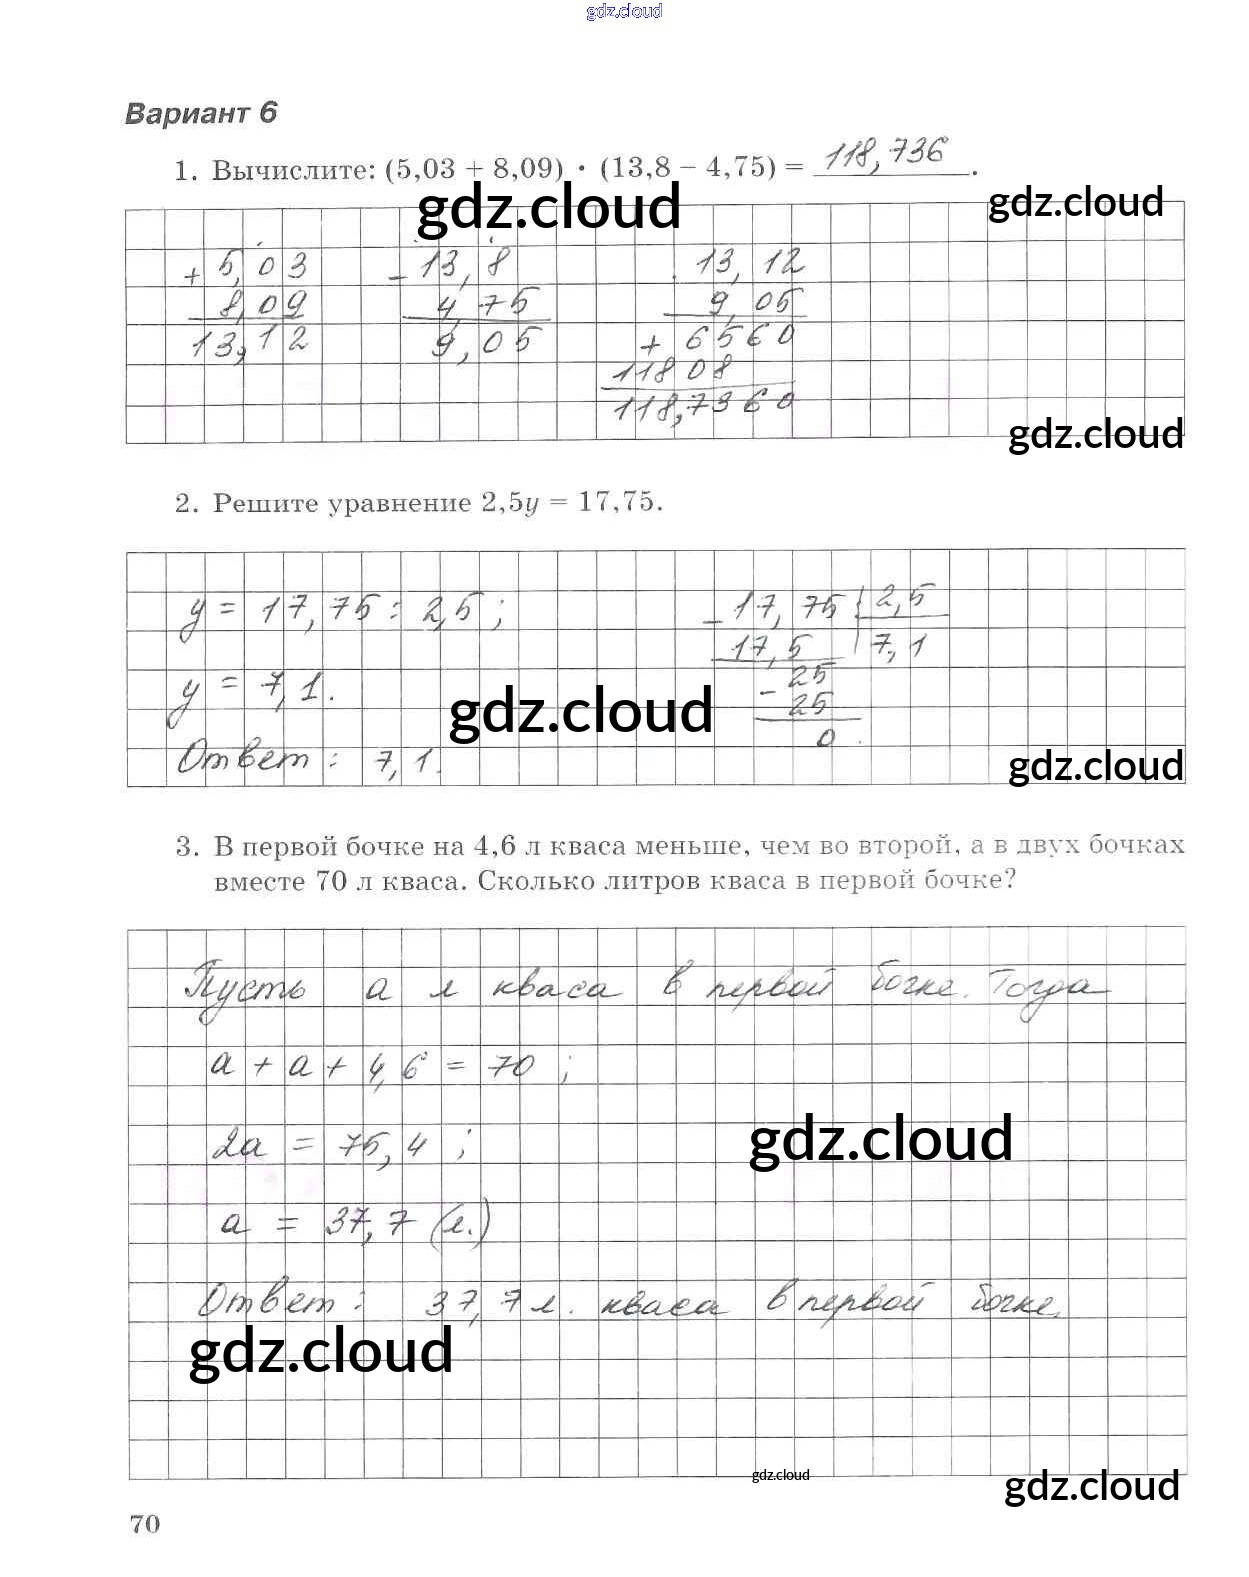 gdz.cloud
Вариант 6
1. Вычислите: (5,03 + 8,09) · (13,8 – 4,75) = 118,736.
gdz.cloud
gdz.cloud
+ 5,03 - 13,8 13,12
8,09 4,75 9,05
13,12 9,05 + 6560
11808
118,7360
gdz.cloud
2. Решите уравнение 2,5y = 17,75.
y = 17,75 : 2,5 ; - 17,75 2,5
17,5 7,1
y = 7,1. - 25
25
gdz.cloud
0
Ответ : 7,1.
gdz.cloud
3. В первой бочке на 4,6 л кваса меньше, чем во второй, а в двух бочках
вместе 70 л кваса. Сколько литров кваса в первой бочке?
Пусть а л кваса в первой бочке. Тогда
а + а + 4,6 = 70 ;
gdz.cloud
2а = 75,4 ;
а = 37,7 (л.)
Ответ : 37,7 л. кваса в первой бочке.
gdz.cloud
gdz.cloud
gdz.cloud
70